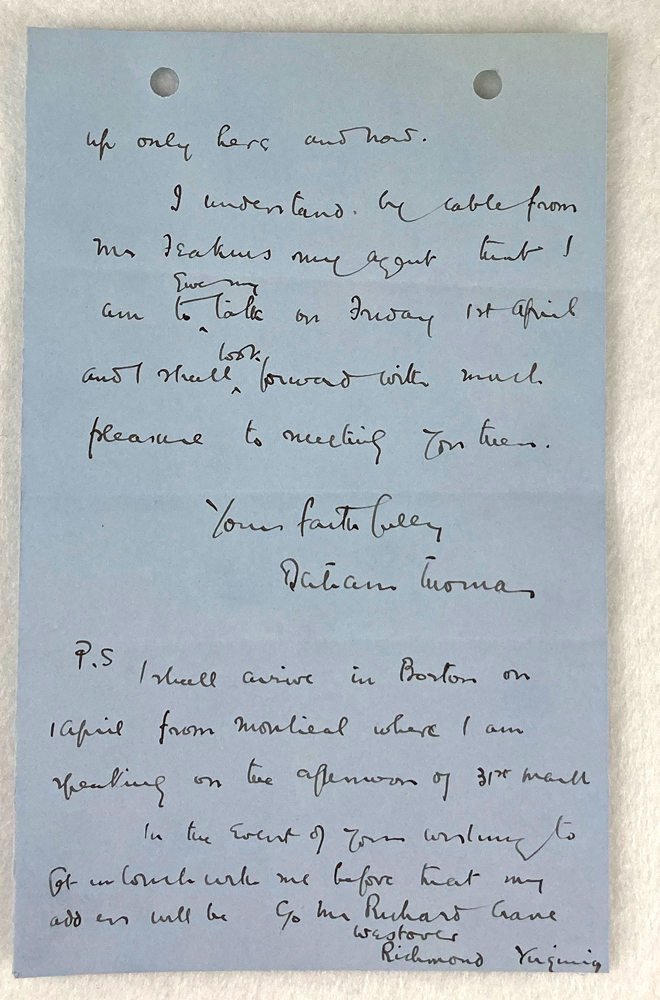 up only here and now.
I understand by cable from
Mr Jeakins my agent that I
give my
am to ^ talk on Friday 1st April
look
and I shall ^ forward with much
pleasure to meeting you then.
Yours faithfully
Tatiana Thomas
P.S I shall arrive in Boston on
1 April from Montreal where I am
speaking on the afternoon of 31st March
In the event of your wishing to
get in touch with me before that my
address will be c/o Mr Richard Crane
Westover
Richmond Virginia